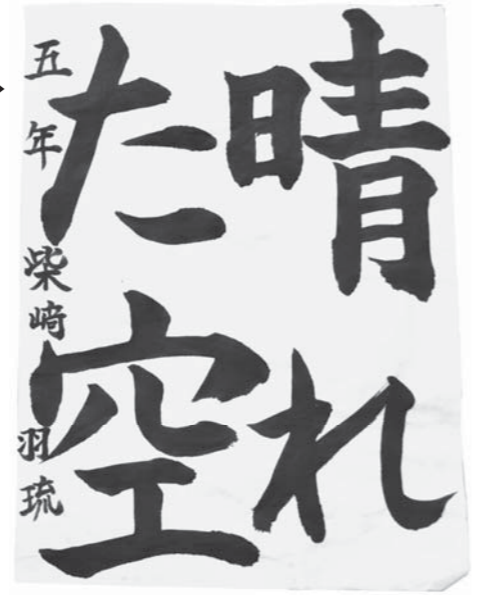 晴れ
た空
五年 柴﨑 羽琉